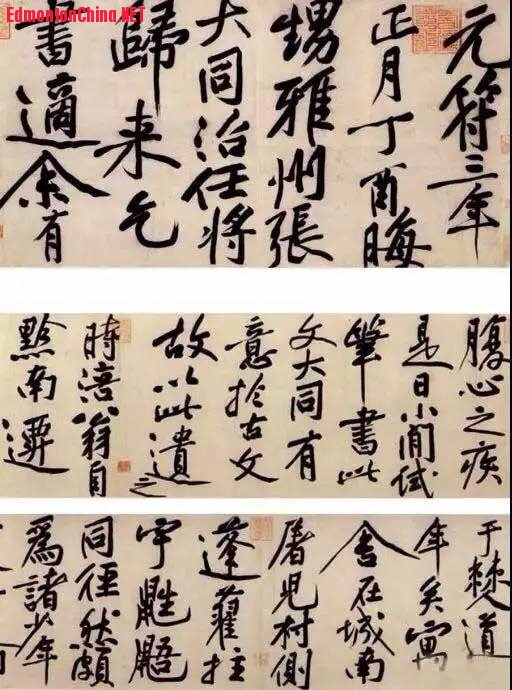 EdmontonChina.NET
元符三年
正月丁酉晦
甥雅州張
大同治任將
歸来乞
書適余有
腹心之疾
是日小閒試
筆書此
文大同有
意扵古文
故以此遺之
時涪翁自
黔南遷
于僰道
年矣寓
舍在城南
屠兒村側
蓬藋拄
宇鼪鼯
同徑然頗
爲諸少年